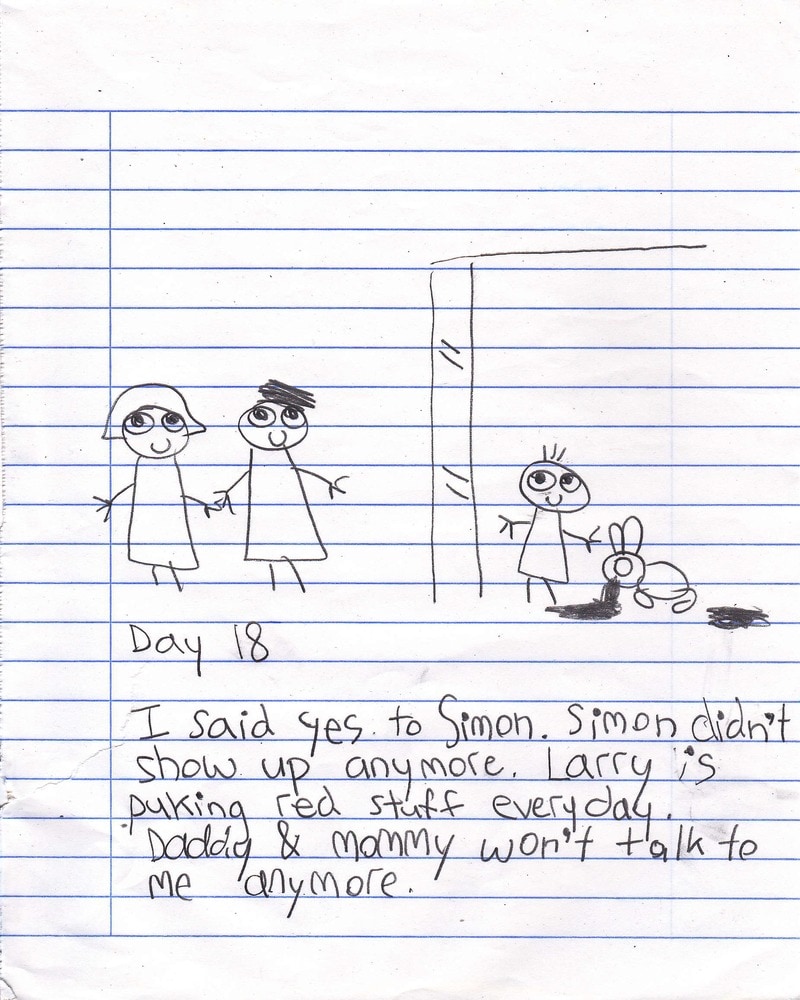 Day 18
I said yes to Simon. Simon didn't
show up anymore. Larry is
puking red stuff everyday.
Daddy & mommy won't talk to
me anymore.